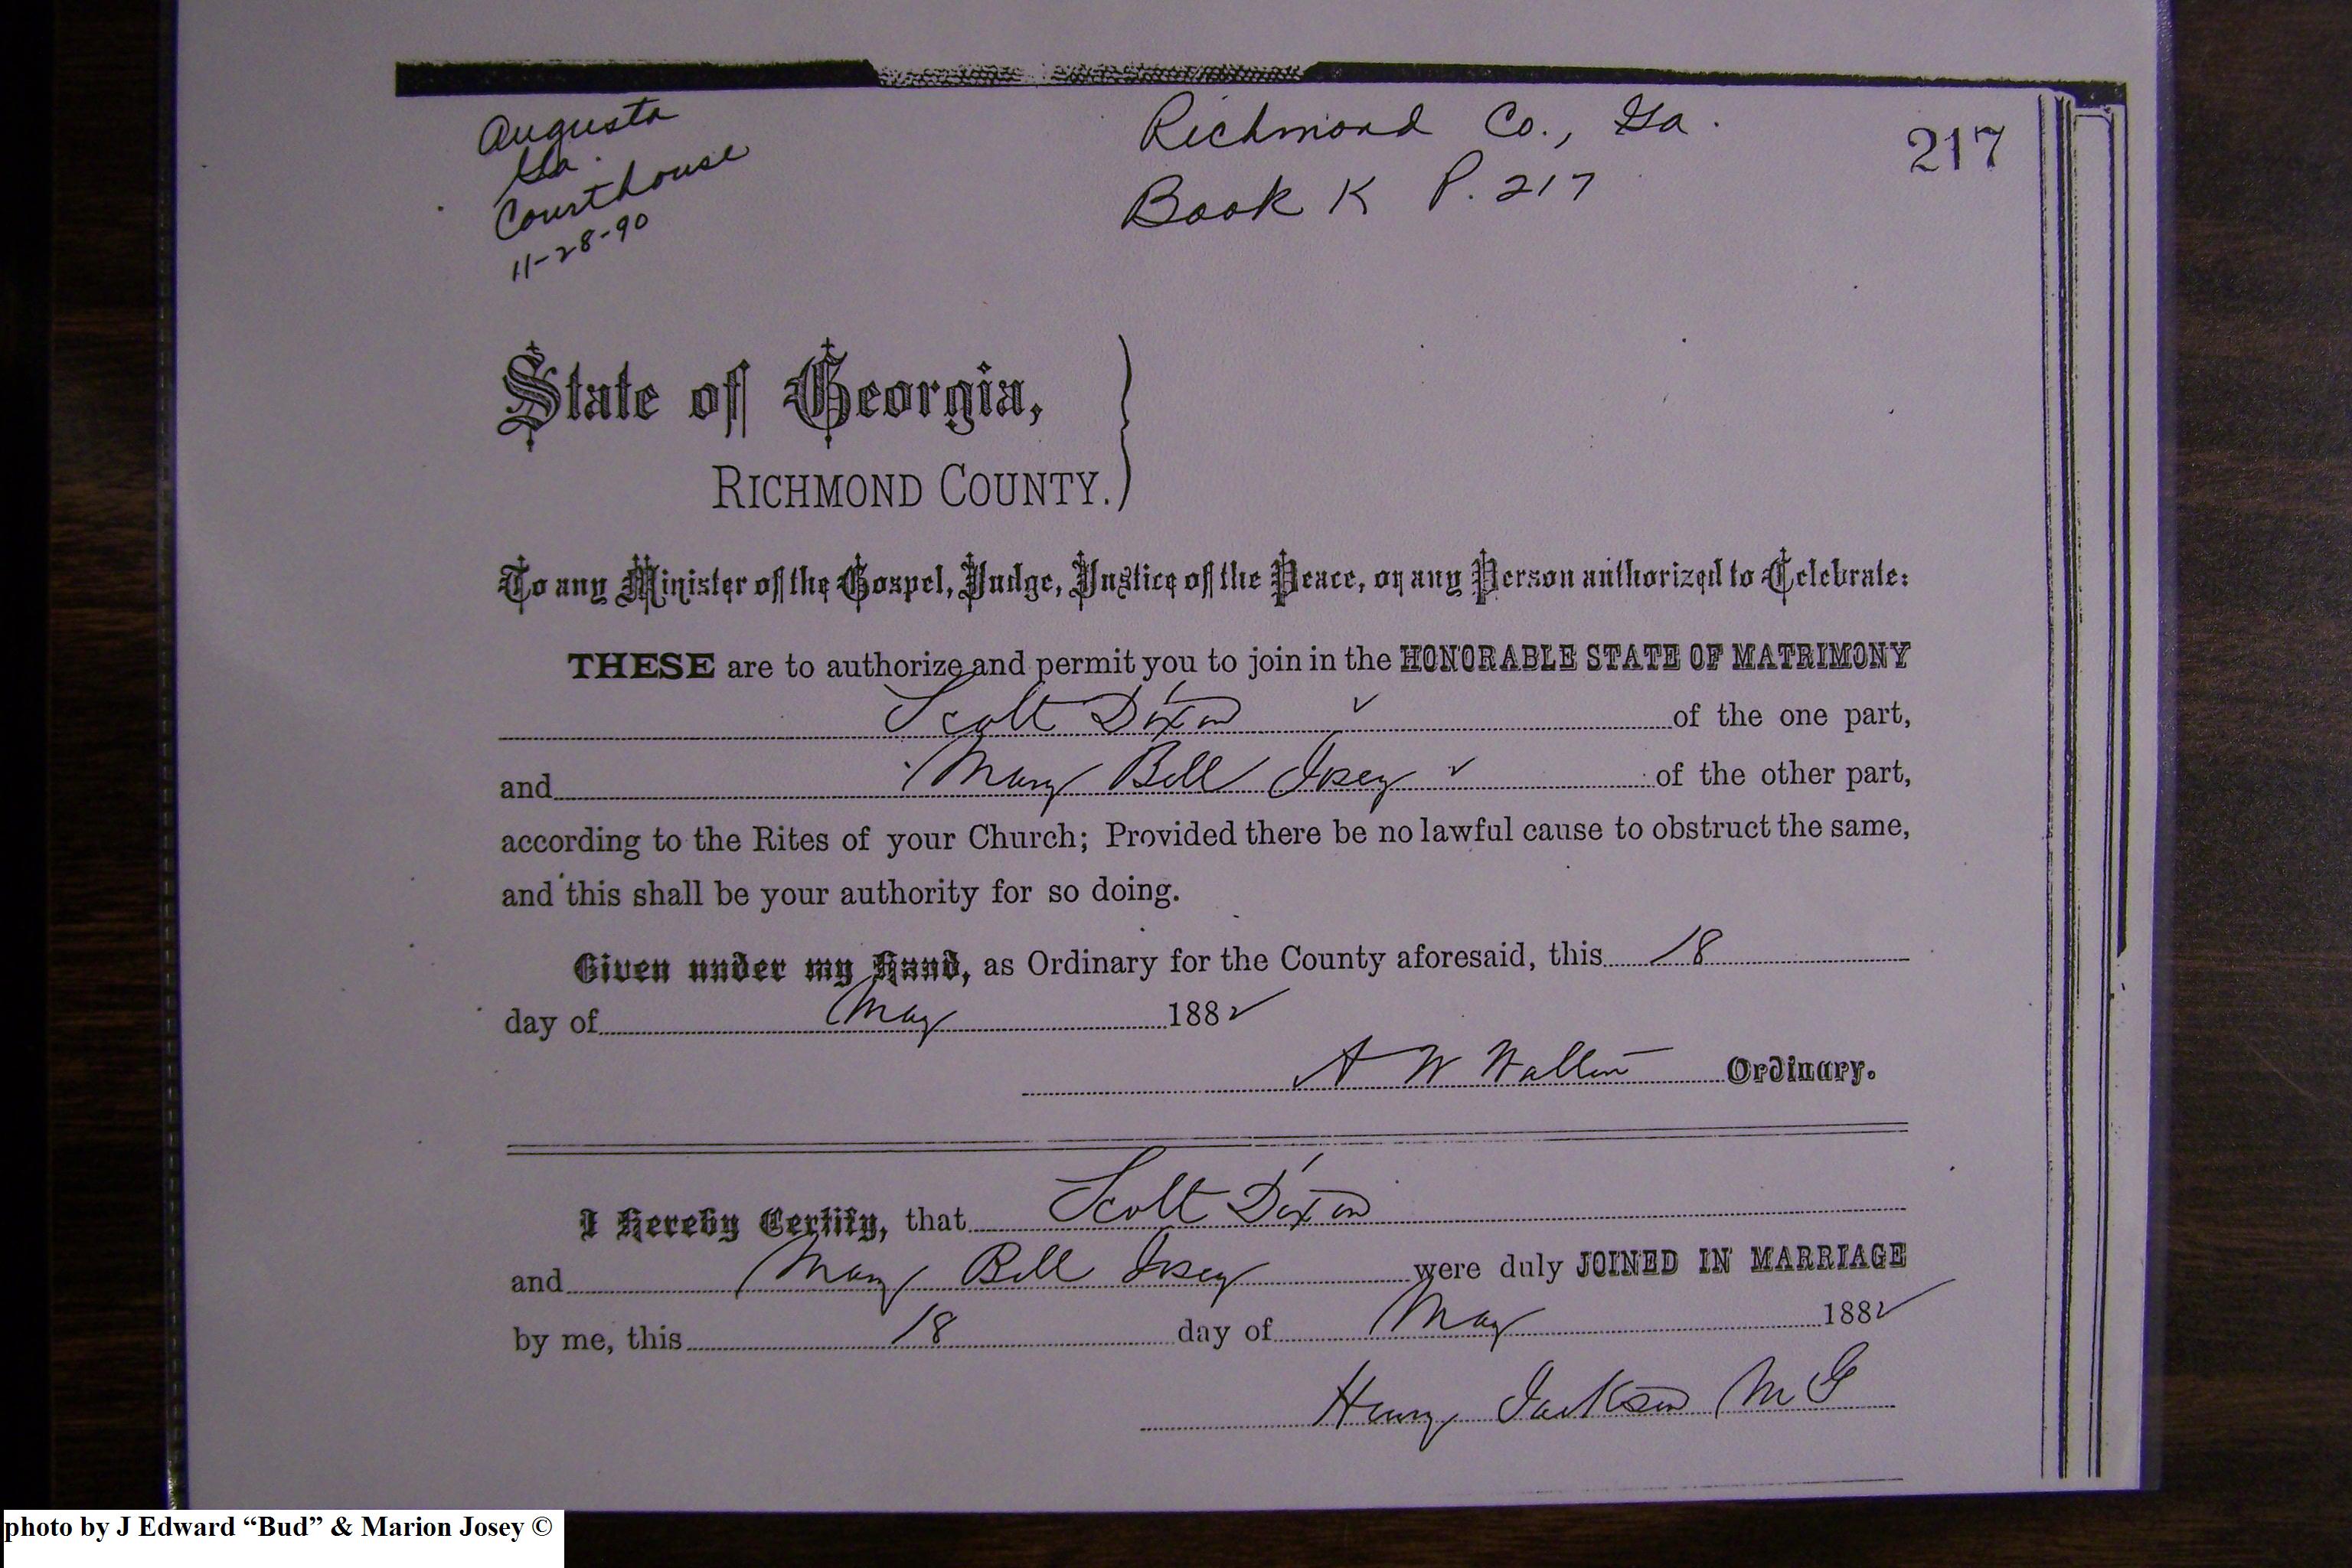 Augusta
Ga.
Courthouse
11-28-90
Richmond Co., Ga.
Book K P. 217
217
State of Georgia,
RICHMOND COUNTY.
To any Minister of the Gospel, Judge, Justice of the Peace, or any Person authorized to Celebrate:
THESE are to authorize and permit you to join in the HONORABLE STATE OF MATRIMONY
Scott Dixon of the one part,
and Mary Bell Josey of the other part,
according to the Rites of your Church; Provided there be no lawful cause to obstruct the same,
and this shall be your authority for so doing.
Given under my Hand, as Ordinary for the County aforesaid, this 18
day of May 1882
A W Walton Ordinary.
I Hereby Certify, that Scott Dixon
and Mary Bell Josey were duly JOINED IN MARRIAGE
by me, this 18 day of May 1882
Henry Jackson M G
photo by J Edward “Bud” & Marion Josey ©